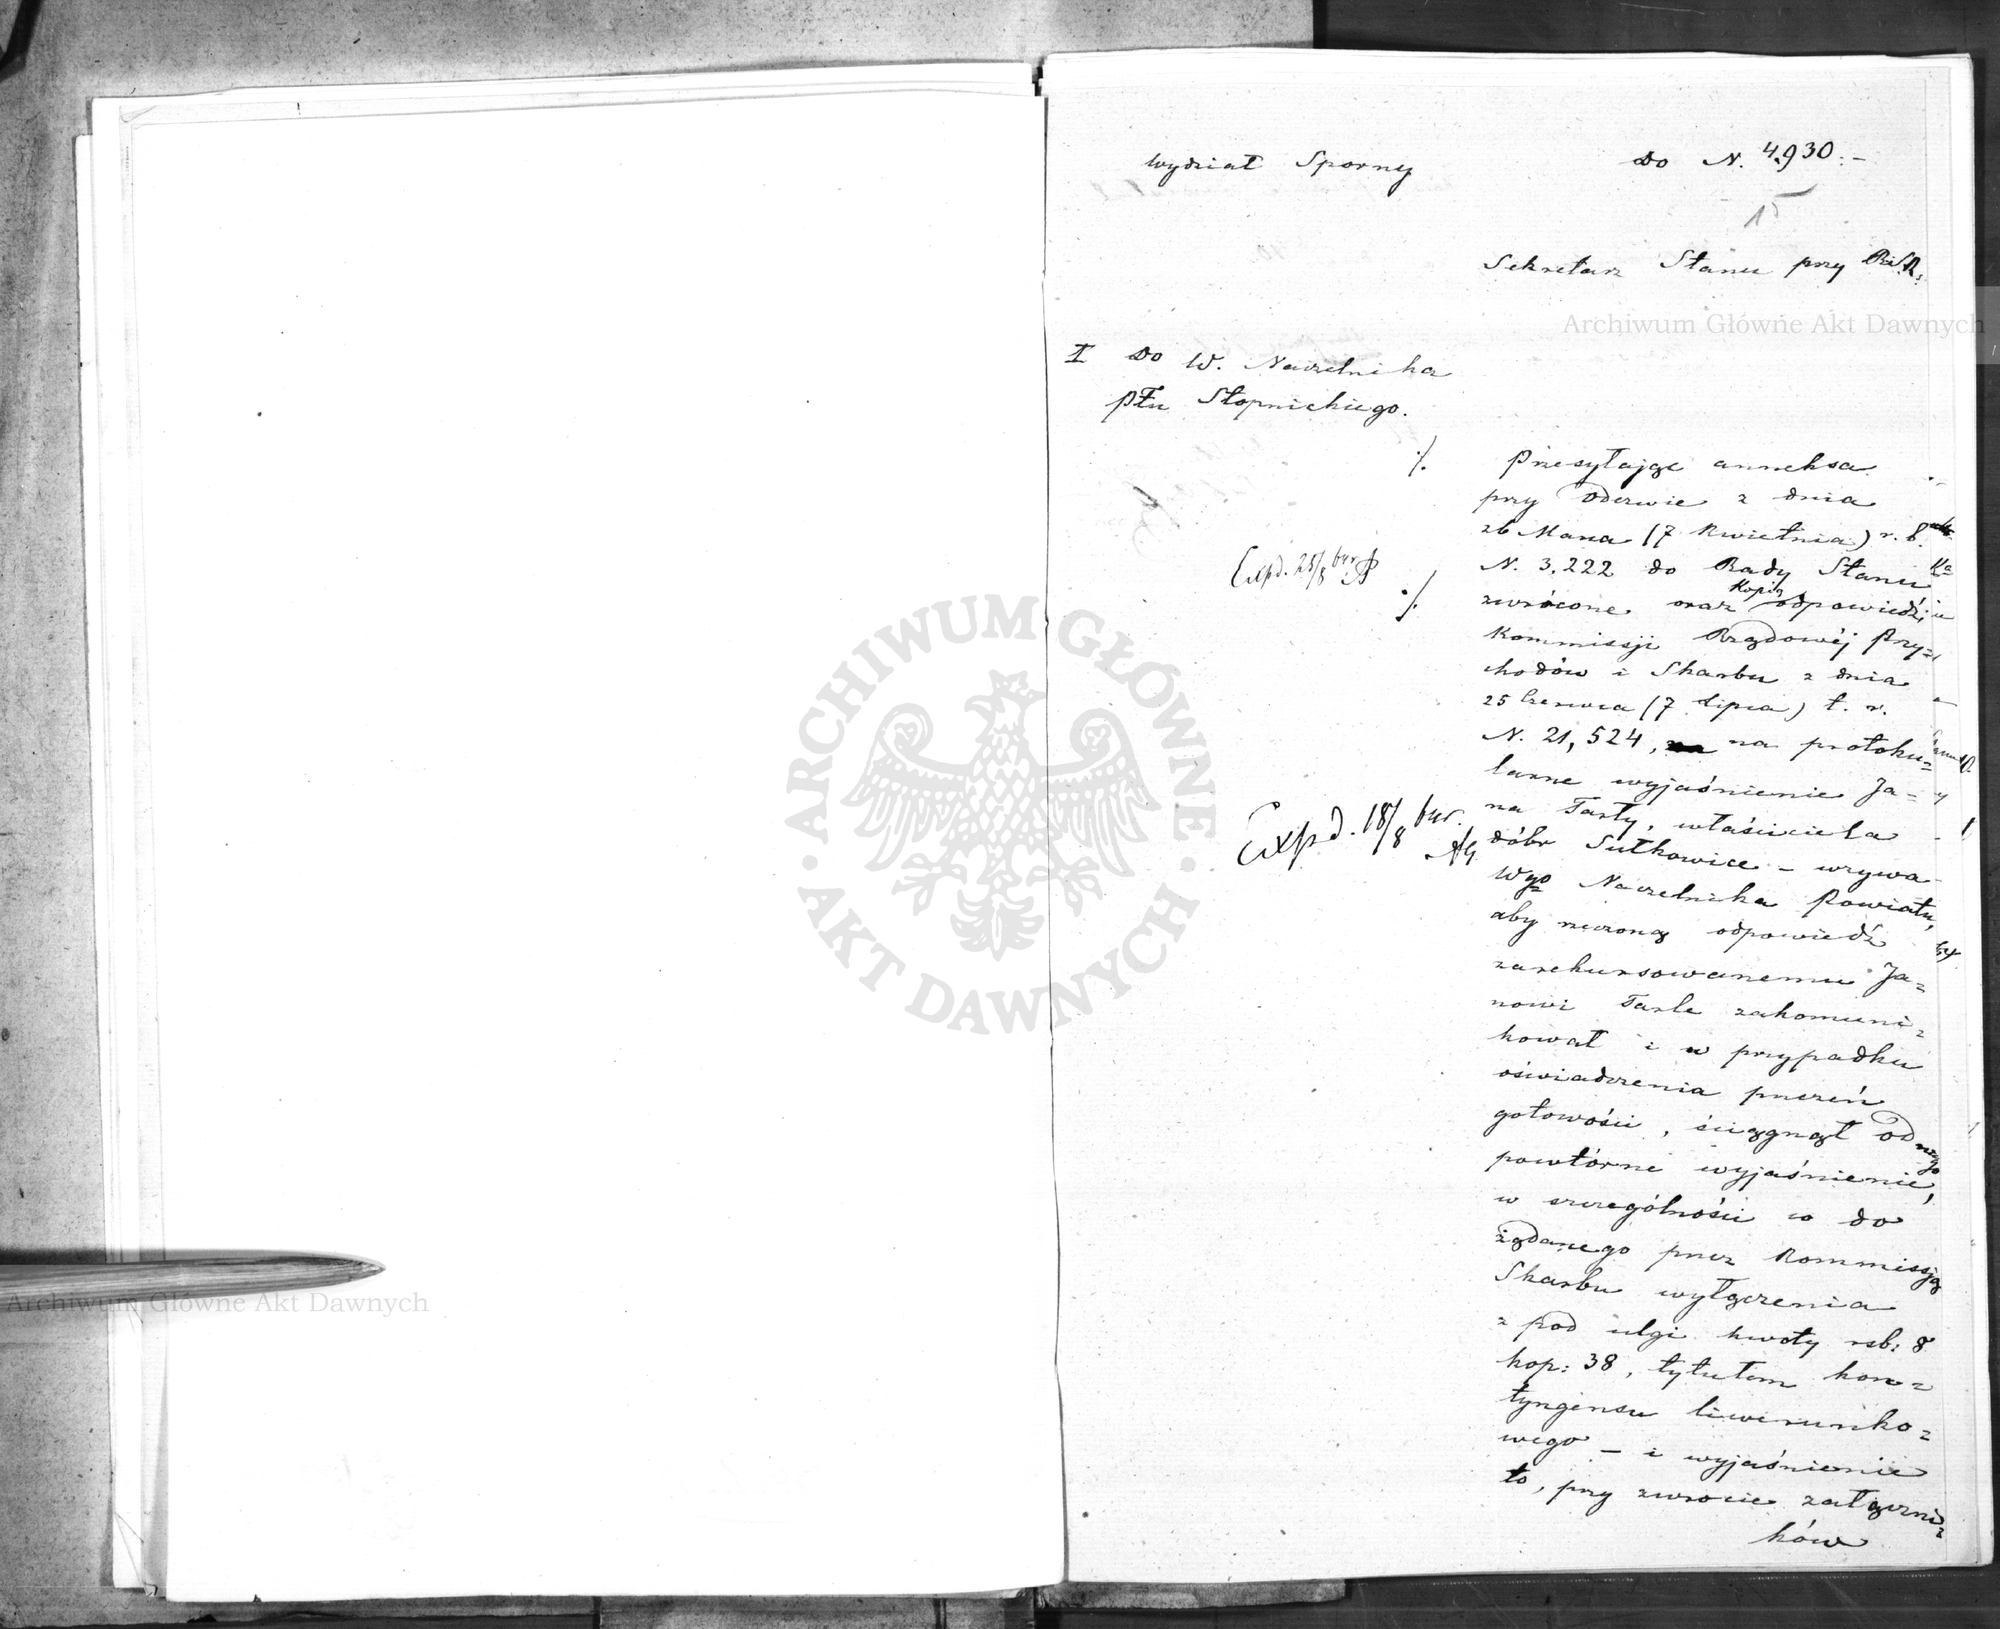 Wydział Sporny
do N. 4,930:-
15
Sekretarz Stanu przy R.S.K:
I do W. Naczelnika
Płu Stopnickiego.
Expd. 25/8 bur.
Expd. 18/8 bur.
Przesyłając anneksa
przy odezwie z dnia
26 Marca (7 Kwietnia) r. b.
N. 3,222 do Rady Stanu
zwrócone oraz kopię odpowiedzi
Kommissji Rządowéj Przy=
chodów i Skarbu z dnia
25 Czerwca (7 Lipca) t. r.
N. 21,524, na protoku=
larne wyjaśnienie Ja=
na Tarły, właściciela
dóbr Sułkowice – wzywa
Wgo Naczelnika Powiatu,
aby rzeczoną odpowiedź
zarekursowanemu Ja=
nowi Tarle zakomuni=
kował i w przypadku
oświadczenia przezeń
gotowości, ściągnął od niego
powtórne wyjaśnienie,
w szczególności co do
żądanego przez Kommissją
Skarbu wyłączenia
z pod ulgi kwoty rsb: 8
kop: 38, tytułem kon=
tyngensu liwerunko=
wego – i wyjaśnienie
to, przy zwrocie załączni=
ków
Archiwum Główne Akt Dawnych
Archiwum Główne Akt Dawnych
ARCHIWUM GŁÓWNE AKT DAWNYCH